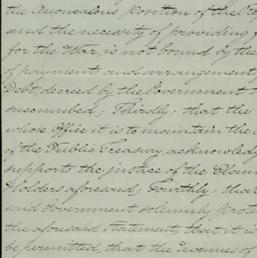 the Anomalous position of the
and the necessity of providing
for the War, is not bound by the
of payments and arrangement
Debt, decreed by the Government
incumbed; Thirdly: that the
whose Office it is to maintain the
of the Public Treasury, acknowledg
supports the justice of the Claim
Holders aforesaid; Fourthly: that
said Government solemnly prote
the aforesaid Statement, that it is
be permitted, that the Enemies of